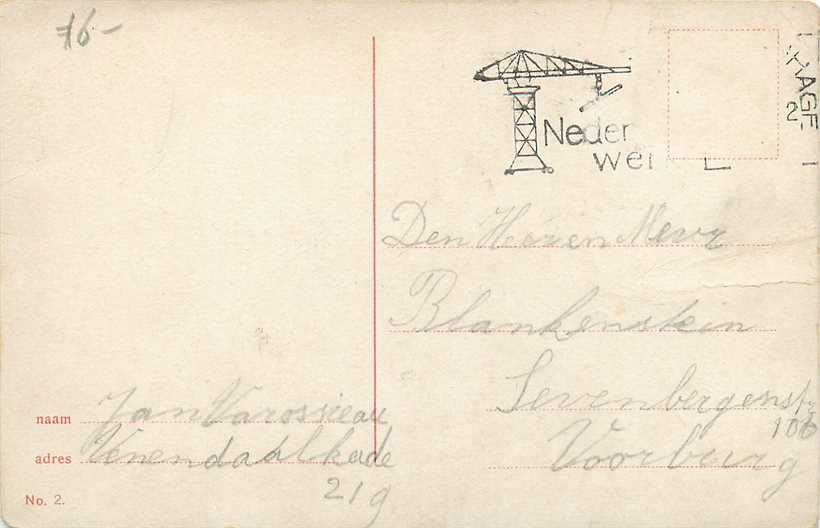 76-
HAGE
2
Neder
wer
Den Heeren Mevr
Blankenstein
Sevenbergenstr
106
Voorburg
naam Jan Varossieau
adres Venendaalkade
219
No. 2.